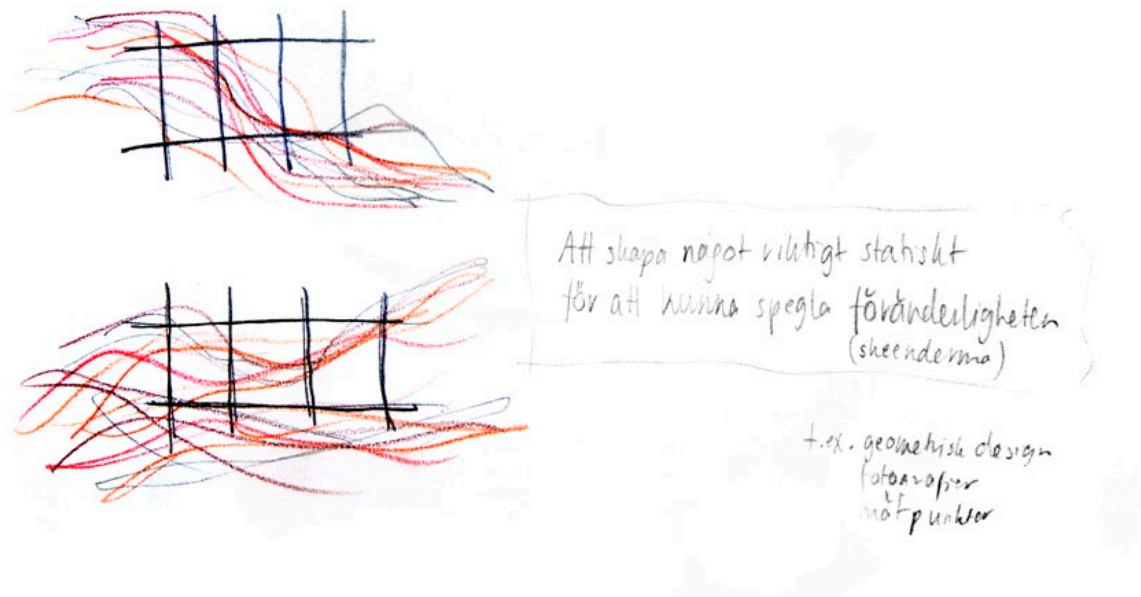 Att skapa något riktigt statiskt
för att kunna spegla föränderligheten
(skeenderna)
t.ex. geometrisk design
fotografier
mätpunkter